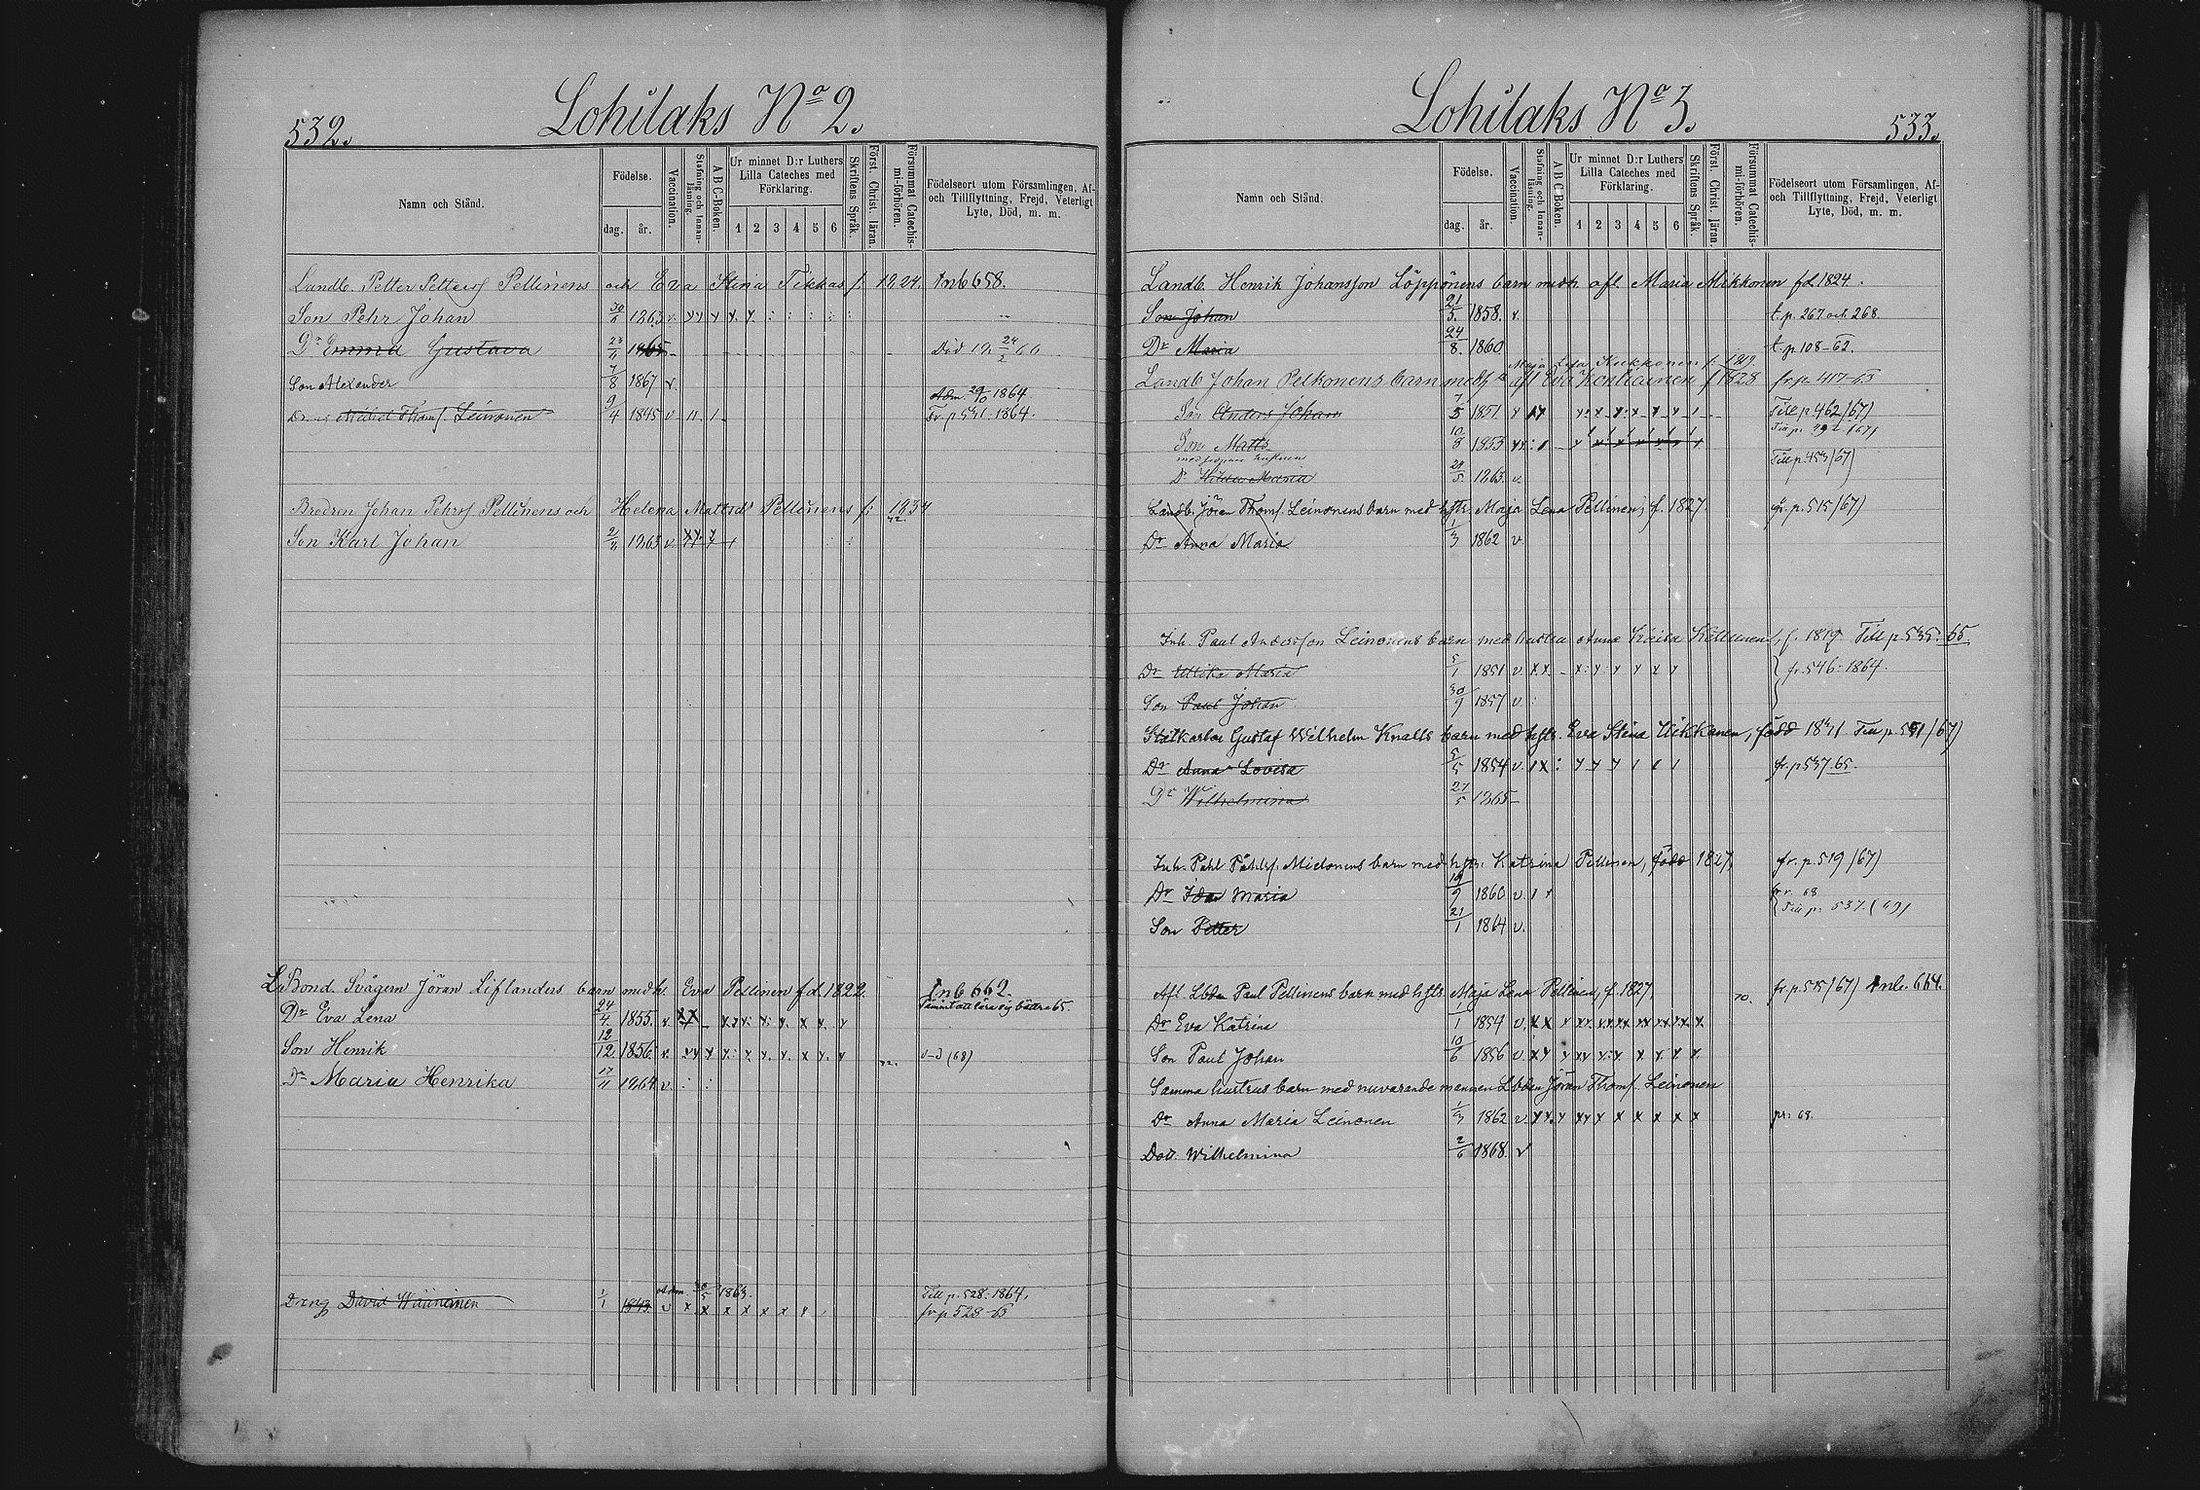 532.
Lohilaks No 2.
Namn och Stånd.
Födelse.
dag.
år.
Vaccination.
Stafning och Innan-läsning.
A B C-Boken.
Ur minnet D:r Luthers Lilla Cateches med Förklaring.
1 2 3 4 5 6
Skriftens Språk.
Först. Christ. läran.
Försummat Catechis-mi-förhören.
Födelseort utom Församlingen, Af- och Tillflyttning, Frejd, Veterligt Lyte, Död, m. m.
Landb. Petter Petterss Pellinens och Eva Stina Tikkas f. 1824. Inb 658.
Son Pehr Johan 1863 v.
Dr Emma Gustava 23/9 1865 Död 24/2 66
Son Alexander 7/8 1867 v.
Adm. 29/10 1864
Dreng Michel Thomss. Leinonen 9/4 1845 v Fr. p 531: 1864.
Brodren Johan Pehrss Pellinens och Helena Mattsdr Pellinens f: 1834
Son Karl Johan 1865 v.
72.
L. Bond. Svågern Jöran Liflanders barn med h. Eva Pellinen fd. 1822. Inb 662.
Dr Eva Lena 24/4. 1855. v. lära sig bättre 65.
Son Henrik 12/12. 1856. v. (68)
72.
Dr Maria Henrika 17/11 1864 v.
Adm. 1863.
Till p. 528: 1864.
Dreng David Wäänänen 1/1 1843. v fr p 528-65
533.
Lohilaks No 3.
Namn och Stånd.
Födelse.
dag.
år.
Vaccination.
Stafning och Innan-läsning.
A B C-Boken.
Ur minnet D:r Luthers Lilla Cateches med Förklaring.
1 2 3 4 5 6
Skriftens Språk.
Först. Christ. läran.
Försummat Catechis-mi-förhören.
Födelseort utom Församlingen, Af- och Tillflyttning, Frejd, Veterligt Lyte, Död, m. m.
Landb. Henrik Johansson Löppönens barn med h. afl. Maria Mikkonen fd 1824.
Son Johan 21/5. 1858. v. t. p. 267 och 268.
Dr Maria 24/8. 1860 t. p 108-62.
Maja Lena Kukkonen f. 1819
Landb Johan Pelkonens barn med h. afl Eva f 1828 fr. p. 417-65
Son Anders Johan 7/5 1851 Till p 462/67)
Son Matts 10/8 1853
med sednare hustrun
Dr Hilda Maria 28/5 1863. v. Till p. 453/67)
Landb. Jöran Thomss. Leinonens barn med hstr. Maja Lena Pellinen, f. 1827. fr. p. 515/67)
Dr Anna Maria 1/3 1862 v
Inh. Paul Andersson Leinonens barn med hustru Anna Kaisa Kettunen, f. 1819 Till p 535. 65
Dr Ulrika Maria 5/1 1851 v fr. 546: 1864.
Son Paul Johan 30/9 1857 v.
Statkarlen Gustaf Wilhelm Knalls barn med hstr. Eva Stina Ukkonen, född Till p 531/67)
Dr Anna Lovisa 5/5 1854 v. fr. p 537. 65.
Dr Wilhelmina 27/5 1865
Inh. Pahl Påhlss. Mielonens barn med hstr. Katrina Pellinen, född 1827. fr. p. 519/67)
Dr Ida Maria 19/9 1860 v.
68
Till p. 537. (69)
Son Petter 21/1 1864 v.
Afl. Lbdn Paul Pellinens barn med hstr. Maja Lena Pellinen, f. 1827. 70. fr. p. 515/67) Inb. 664.
Dr Eva Katrina 1/1 1854 v.
Son Paul Johan 10/6 1856 v.
Samma hustrus barn med nuvarande mannen Lbdn Jöran Thomss. Leinonen
Dr Anna Maria Leinonen 1/3 1862 v. 68.
Dott. Wilhelmina 2/6 1868. v